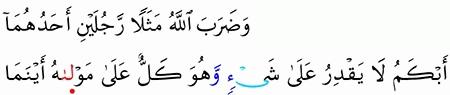 وَضَرَبَ ٱللَّهُ مَثَلًا رَّجُلَيْنِ أَحَدُهُمَآ
أَبْكَمُ لَا يَقْدِرُ عَلَىٰ شَىْءٍ وَهُوَ كَلٌّ عَلَىٰ مَوْلَىٰهُ أَيْنَمَا